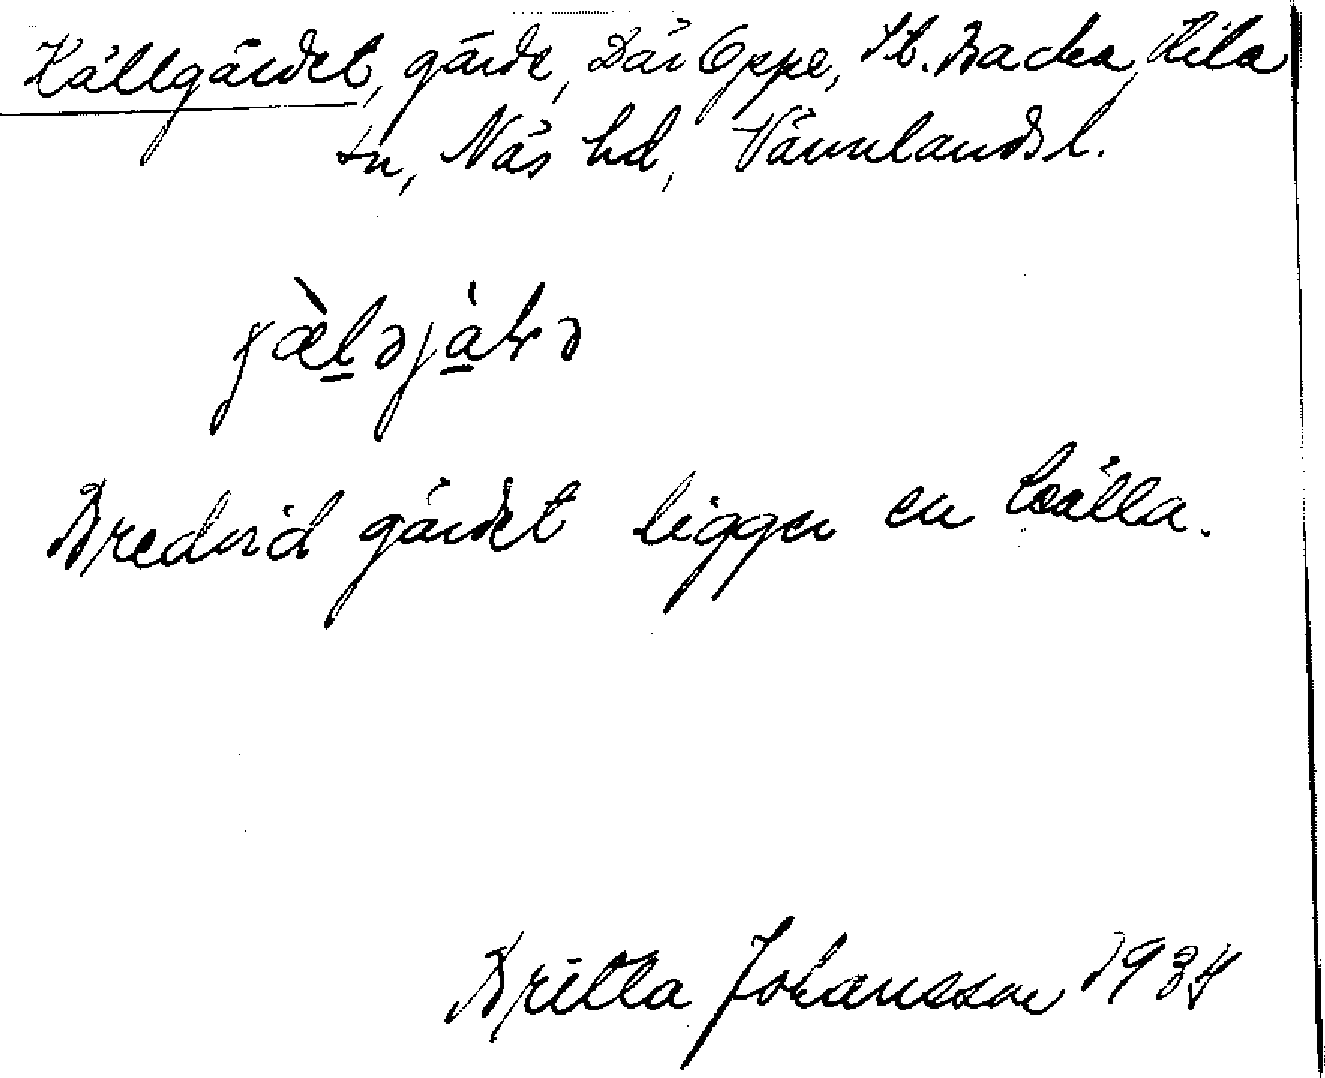 Källgärdet, gärde, Där Oppe, St. Backa, Kila
sn, Näs hd, Värmlands l.
Bredvid gärdet ligger en källa.
Britta Johansson 1934